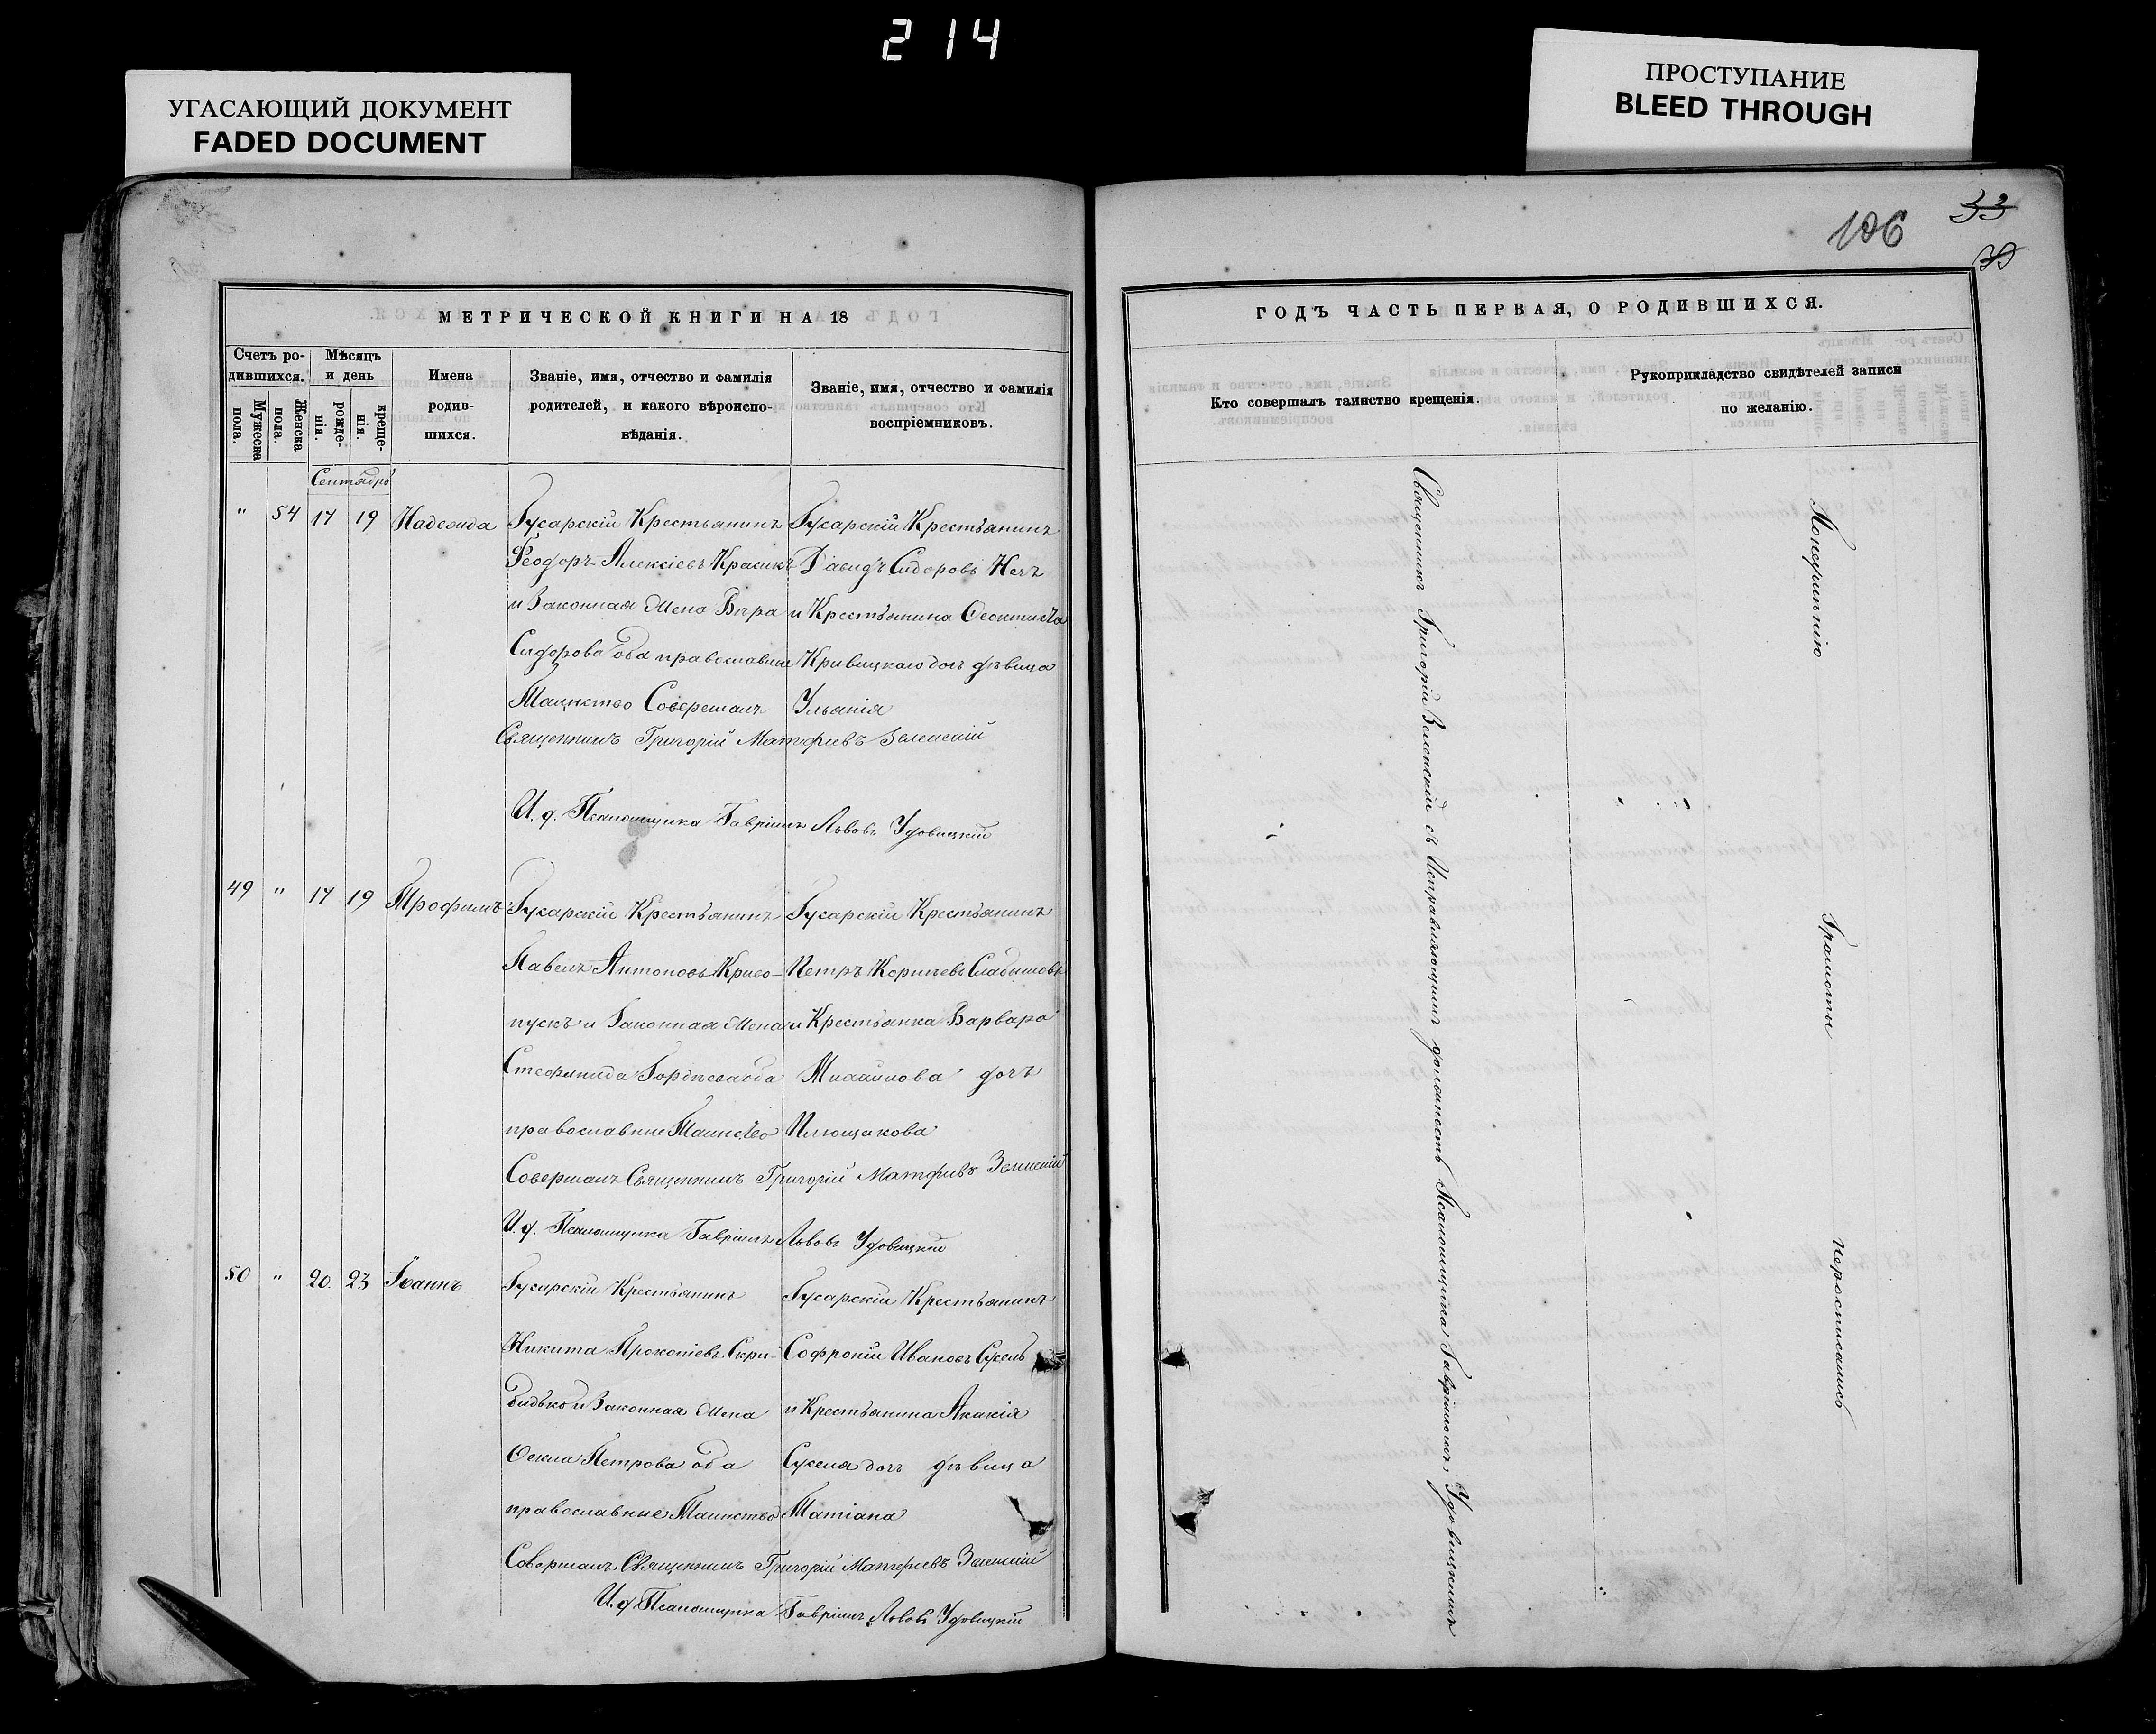 214
УГАСАЮЩИЙ ДОКУМЕНТ
FADED DOCUMENT
ПРОСТУПАНИЕ
BLEED THROUGH
106
33
МЕТРИЧЕСКОЙ КНИГИ НА 18
Счетъ ро-
дившихся.
Мужеска
пола.
Женска
пола.
Мѣсяцъ
и день
рожде-
нія.
креще-
нія.
Имена
родив-
шихся.
Званіе, имя, отчество и фамилія
родителей, и какого вѣроиспо-
вѣданія.
Званіе, имя, отчество и фамилія
воспріемниковъ.
Сентябрь
" 54 17 19 Надежда Гусарскій Крестьянинъ Гусарскій Крестьянинъ
Феодоръ Алексіевъ Давидъ Сидоровъ
и Законная Жена Вѣра и Крестьянина Феоктиста
Сидорова оба православные Кривицкаго дочь дѣвица
Таинство Совершалъ Ульянія
Священникъ Григорій Матфіевъ Зеленскій
И. д. Псаломщика Гавріилъ Львовъ Удовицкій
49 " 17 19 Трофимъ Гусарскій Крестьянинъ Гусарскій Крестьянинъ
Павелъ Антоновъ Криво- Петръ
пускъ и Законная Жена и Крестьянка Варвара
Стефанида Гордѣева оба Михайлова дочь
православные Таинство Илющакова
Совершалъ Священникъ Григорій Матфіевъ Зеленскій
И. д. Псаломщика Гавріилъ Львовъ Удовицкій
50 " 20. 23 Іоаннъ Гусарскій Крестьянинъ Гусарскій Крестьянинъ
Никита Прокопіевъ Скри- Софроній Ивановъ Сусель
бидько и Законная Жена и Крестьянина Акакія
Фекла Петрова оба Суселя дочь дѣвица
православные Таинство Татіана
Совершалъ Священникъ Григорій Матфіевъ Зеленскій
И. д. Псаломщика Гавріилъ Львовъ Удовицкій
ГОДЪ ЧАСТЬ ПЕРВАЯ, О РОДИВШИХСЯ.
Кто совершалъ таинство крещенія.
Рукоприкладство свидѣтелей записи
по желанію.
Священникъ Григорій Зеленскій съ Исправляющимъ должность Псаломщика Гавріиломъ Удовицкимъ
Понеумѣнію Грамоты Нерасписались